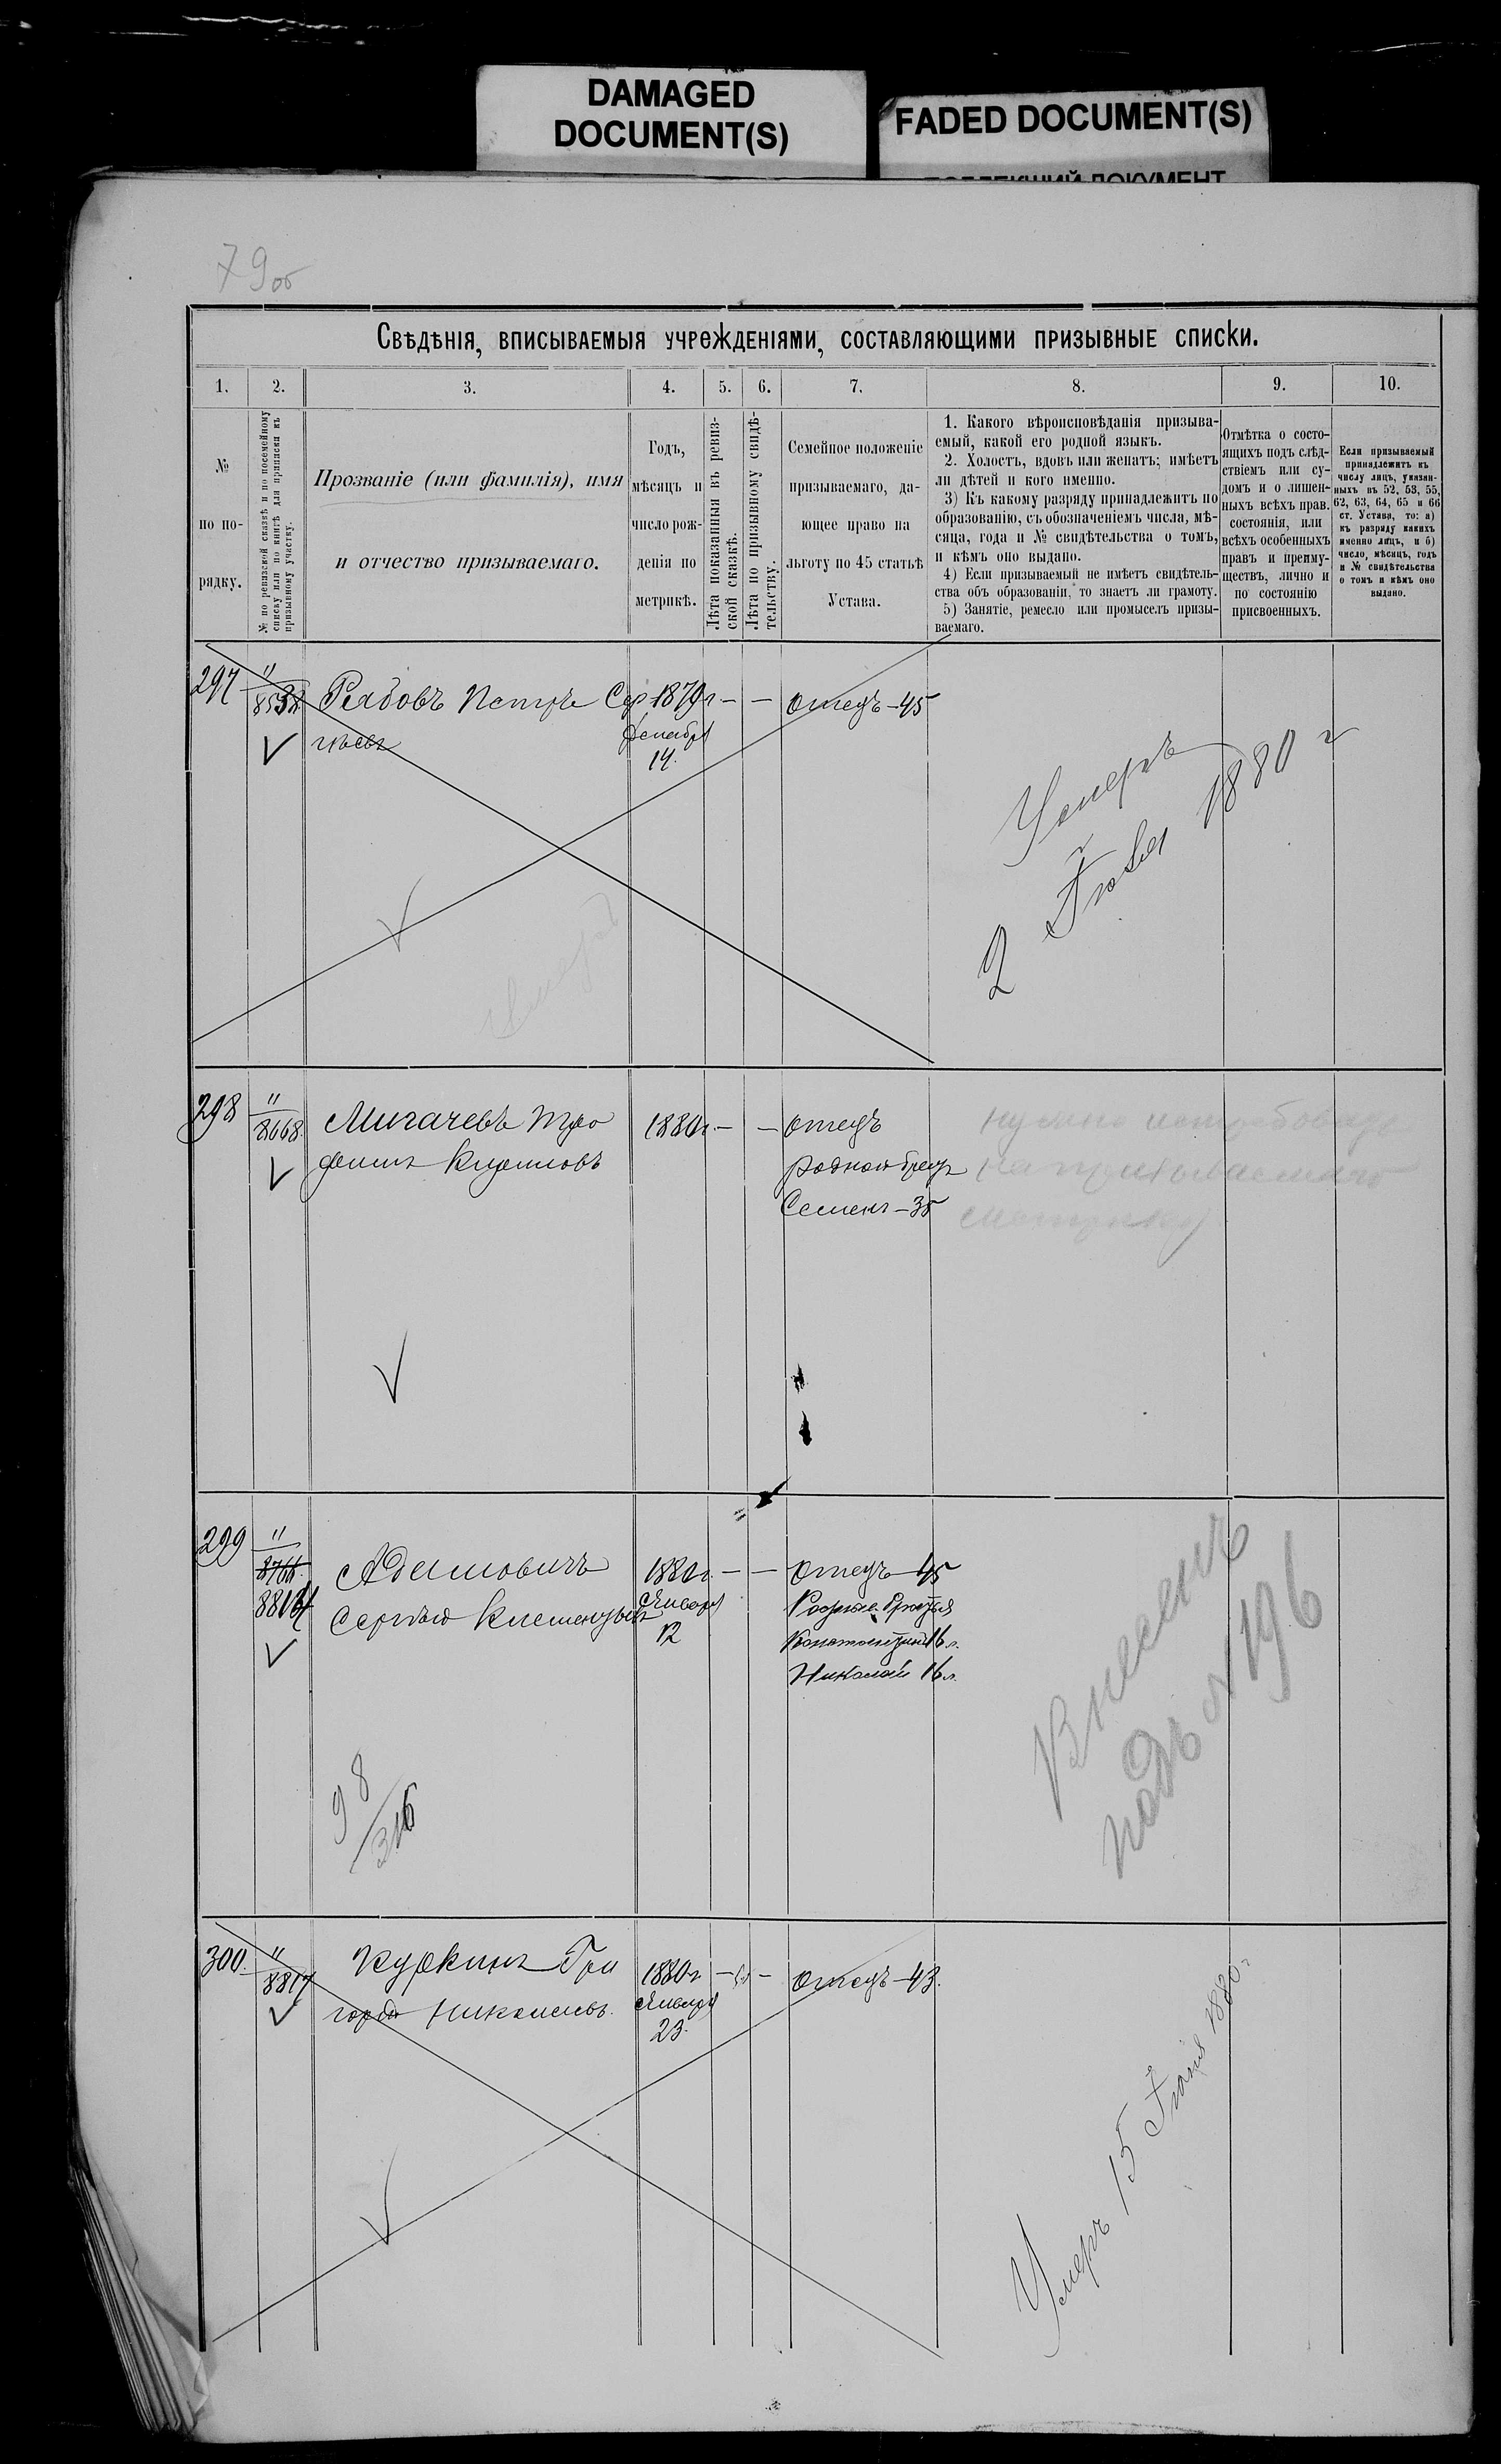 DAMAGED
DOCUMENT(S)
FADED DOCUMENT(S)
79об
Свѣдѣнія, вписываемыя учрежденіями, составляющими призывные списки.
1. 2. 3. 4. 5. 6. 7. 8. 9. 10.
№
по по-
рядку.
№ по ревизской сказкѣ и по посемейному
списку или по книгѣ для приписки къ
призывному участку.
Прозваніе (или фамилія), имя
и отчество призываемаго.
Годъ,
мѣсяцъ и
число рож-
денія по
метрикѣ.
Лѣта показанныя въ ревиз-
ской сказкѣ.
Лѣта по призывному свидѣ-
тельству.
Семейное положеніе
призываемаго, да-
ющее право на
льготу по 45 статьѣ
Устава.
1. Какого вѣроисповѣданія призыва-
емый, какой его родной языкъ.
2. Холостъ, вдовъ или женатъ; имѣетъ
ли дѣтей и кого именно.
3) Къ какому разряду принадлежитъ по
образованію, съ обозначеніемъ числа, мѣ-
сяца, года и № свидѣтельства о томъ,
и кѣмъ оно выдано.
4) Если призываемый не имѣетъ свидѣтель-
ства объ образованіи, то знаетъ ли грамоту.
5) Занятіе, ремесло или промыселъ призы-
ваемаго.
Отмѣтка о состо-
ящихъ подъ слѣд-
ствіемъ или су-
домъ и о лишен-
ныхъ всѣхъ прав.
состоянія, или
всѣхъ особенныхъ
правъ и преиму-
ществъ, лично и
по состоянію
присвоенныхъ.
Если призываемый
принадлежитъ къ
числу лицъ, указан-
ныхъ въ 52, 53, 55,
62, 63, 64, 65 и 66
ст. Устава, то: а)
къ разряду какихъ
именно лицъ, и б)
число, мѣсяцъ, годъ
и № свидѣтельства
о томъ и кѣмъ оно
выдано.
297 " Рябовъ Петръ Сер 1879г — — отецъ —45
гѣевъ Декабря
14.
Умеръ
2 Іюля 1880 г
Умеръ
298 "
8668 Мигачевъ Тро 1880г. — — отецъ
фимъ родной братъ
Семенъ —35
нужно истребовать
на призываемаго
метрику
299 "
8813 Адамовичъ 1880г. — — отецъ 45
Сергѣй Января Родные братья
12 Константинъ 16 л.
Николай 16 л.
98
316
Внесенъ
подъ №196
300. "
8817 Куркинъ Гри 1880г — — отецъ —43.
горій Николаевъ. Января
23.
Умеръ 15 Іюня 1880 г